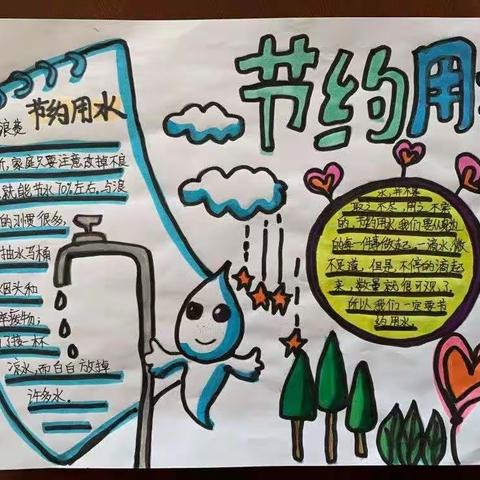 节约用
节约用水
浪费
析,家庭只要注意改掉不良
就能节水70%左右,与浪
的习惯很多,
抽水马桶
烟头和
碎废物;
了接一杯
凉水,而白白放掉
许多水。
水,并不是
取之不尽,用之不竭
的,节约用水我们要从身边
的每一件事做起。一滴水,微
不足道,但是,不停的滴起
来,数量就很可观了
所以我们一定要节
约用水。